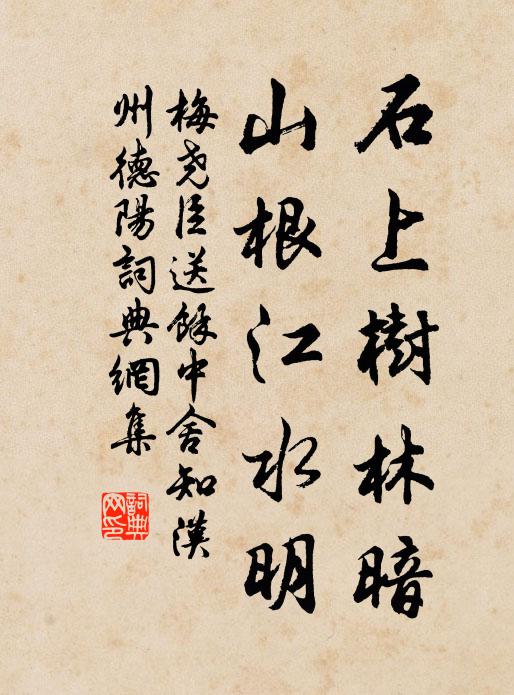 石上樹林暗
山根江水明
梅堯臣送餘中舍知漢
州德陽詞典網集
詞典网印